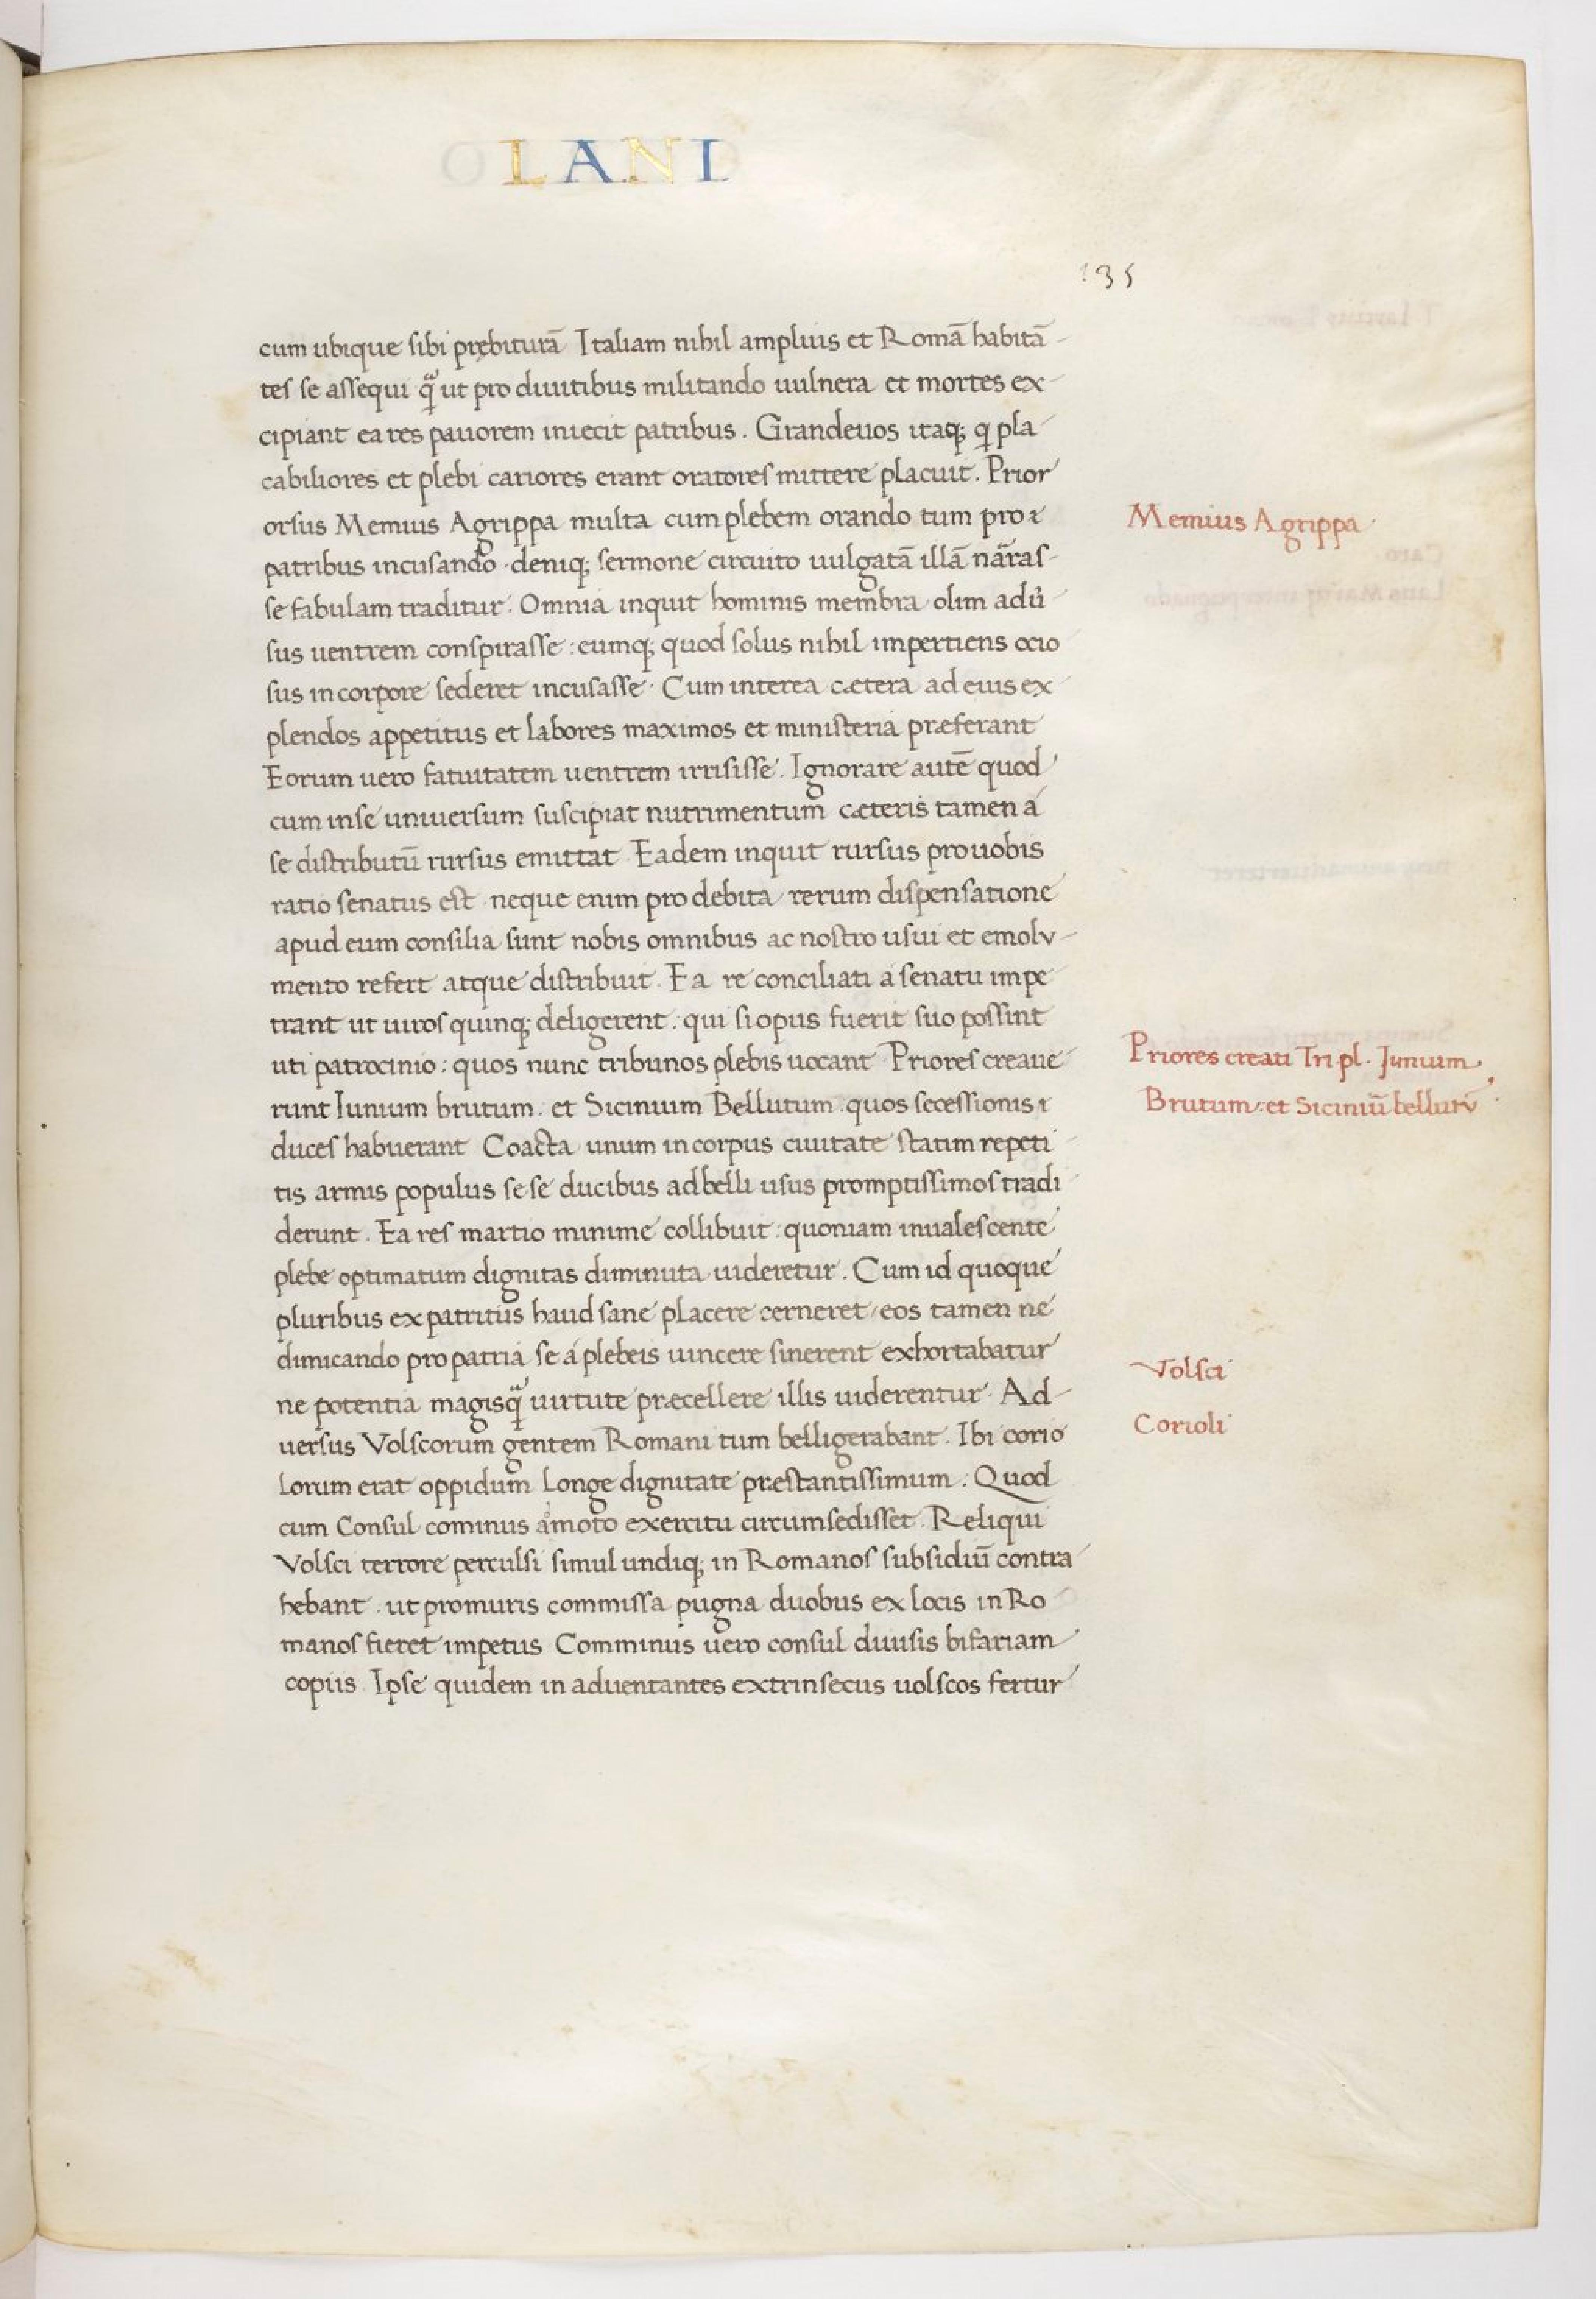 LANI
135
cum ubique sibi prębiturā Italiam nihil amplius et Romā habitā-
tes se assequi qͣ̃ ut pro diuitibus militando uulnera et mortes ex-
cipiant ea res pauorem iniecit patribus. Grandeuos itaq; q pla
cabiliores et plebi cariores erant oratores mittere placuit. Prior
orsus Memius Agrippa multa cum plebem orando tum pro
Memius Agrippa
patribus incusando. deniq; sermone circuito uulgatā illā nāras-
se fabulam traditur. Omnia inquit hominis membra olim adũ
sus uentrem conspirasse: eumq; quod solus nihil impertiens ocio
sus in corpore sederet incusasse. Cum interea cætera ad eius ex
plendos appetitus et labores maximos et ministeria præferant
Eorum uero fatuitatem uentrem irrisisse. Ignorare autē quod
cum in se uniuersum suscipiat nutrimentum cæteris tamen á
se distributū rursus emittat. Eadem inquit rursus pro uobis
ratio senatus est. neque enim pro debita rerum dispensatione
apud eum consilia sunt nobis omnibus ac nostro usui et emolv-
mento refert atque distribuit. Ea re conciliati á senatu impe
trant ut uiros quinq; deligerent. qui si opus fuerit suo possint
uti patrocinio: quos nunc tribunos plebis uocant Priores creaue
Priores creati Tri. pl. Junium
runt Iunium brutum. et Sicinium Bellutum. quos secessionis
Brutum: et Siciniū bellutv̄
duces habuerant Coacta unum in corpus ciuitate statim repeti
tis armis populus se se ducibus ad belli usus promptissimos tradi
derunt. Ea res martio minime collibuit: quoniam inualescente
plebe optimatum dignitas diminuta uideretur. Cum id quoque
pluribus ex patritiis haud sane placere cerneret, eos tamen ne
dimicando pro patria se á plebeis uincere sinerent exhortabatur
Volsci
ne potentia magisqͣ̃ uirtute præcellere illis uiderentur. Ad-
Corioli
uersus Volscorum gentem Romani tum belligerabant. Ibi corio
lorum erat oppidum longe dignitate præstantissimum: Quod
cum Consul cominus ámoto exercitu circumsedisset. Reliqui
Volsci terrore perculsi simul undiq; in Romanos subsidiū contra
hebant. ut pro muris commissa pugna duobus ex locis in Ro
manos fieret impetus Comminus uero consul diuisis bifariam
copiis Ipse quidem in aduentantes extrinsecus uolscos fertur